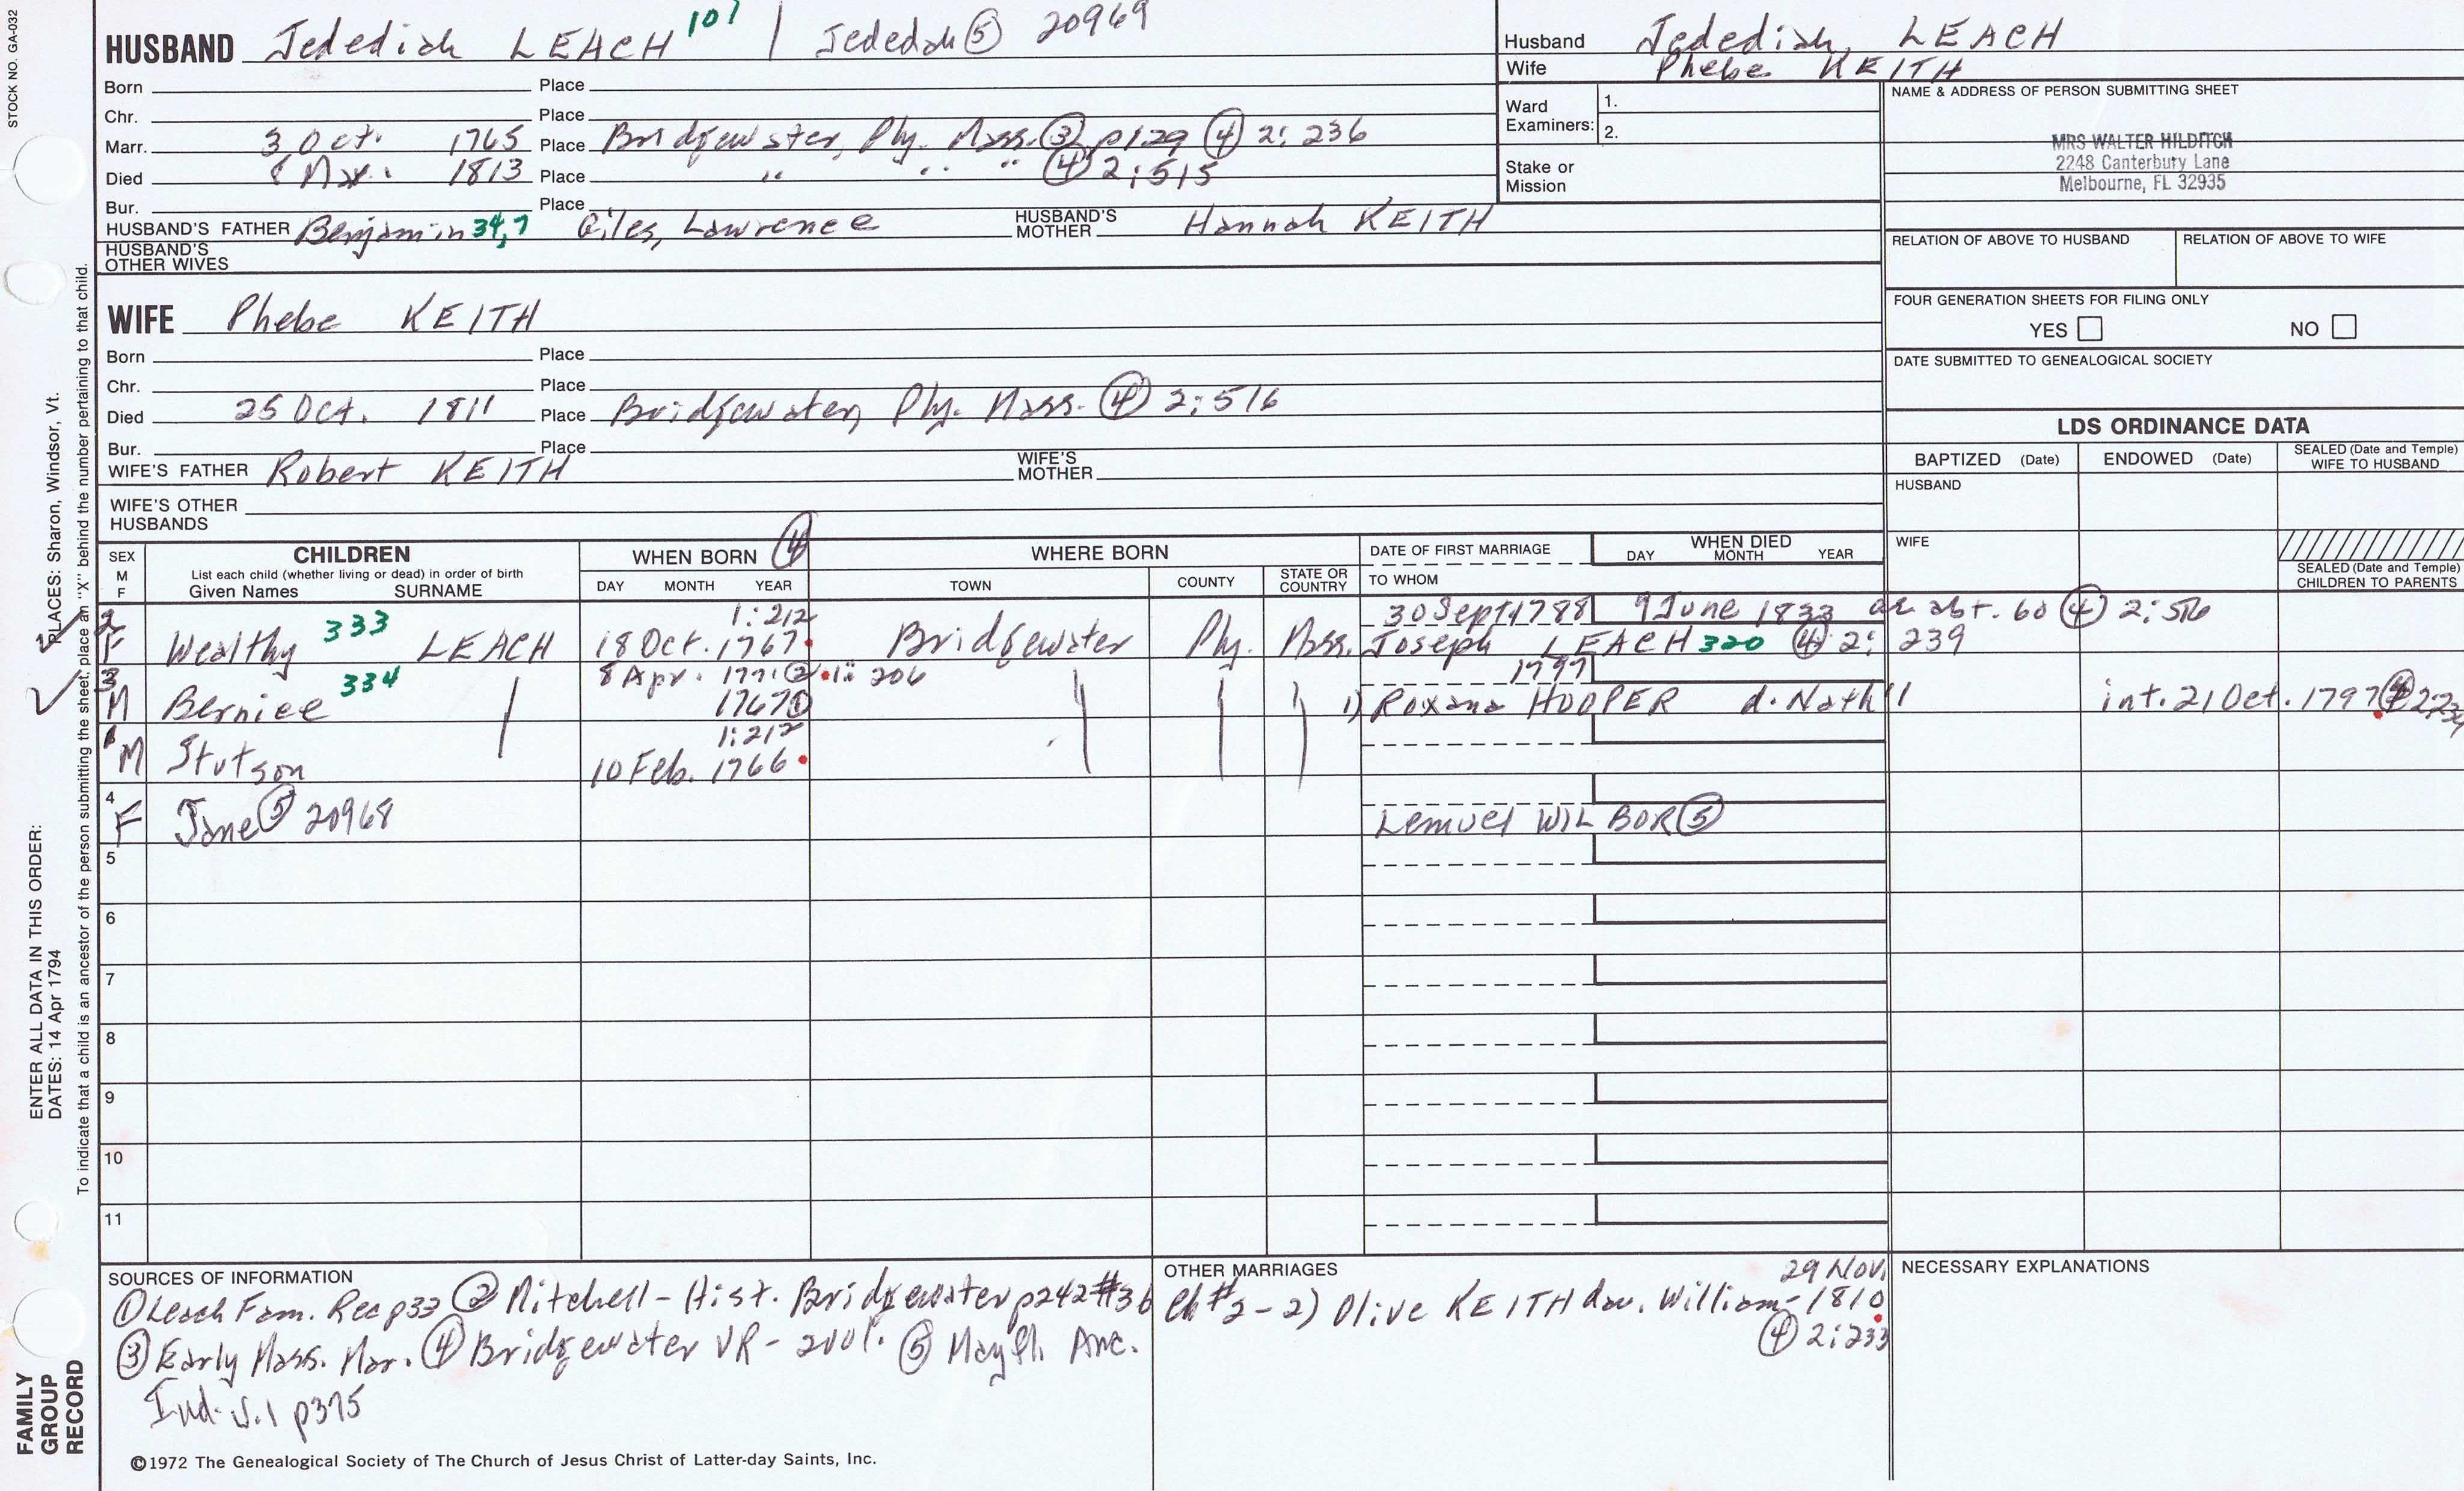 STOCK NO. GA-032
HUSBAND Jedediah LEACH 101 / Jededah ⑤ 20969
Born Place
Chr. Place
Marr. 3 Oct. 1765 Place Bridgewater, Ply. Mass. ③ p129 ④ 2:236
Died 1813 Place " " " ④ 2:515
Bur. Place
HUSBAND'S FATHER Benjamin 34,7 Giles, Lawrence HUSBAND'S MOTHER Hannah KEITH
HUSBAND'S OTHER WIVES
Husband Jedediah LEACH
Wife Phebe KEITH
Ward Examiners: 1.
2.
Stake or Mission
NAME & ADDRESS OF PERSON SUBMITTING SHEET
MRS WALTER HILDITCH
2248 Canterbury Lane
Melbourne, FL 32935
RELATION OF ABOVE TO HUSBAND RELATION OF ABOVE TO WIFE
FOUR GENERATION SHEETS FOR FILING ONLY
YES NO
DATE SUBMITTED TO GENEALOGICAL SOCIETY
WIFE Phebe KEITH
Born Place
Chr. Place
Died 25 Oct. 1811 Place Bridgewater, Ply. Mass. ④ 2:516
Bur. Place
WIFE'S FATHER Robert KEITH WIFE'S MOTHER
WIFE'S OTHER HUSBANDS
LDS ORDINANCE DATA
BAPTIZED (Date) ENDOWED (Date) SEALED (Date and Temple) WIFE TO HUSBAND
HUSBAND
WIFE
SEALED (Date and Temple) CHILDREN TO PARENTS
SEX M F
CHILDREN
List each child (whether living or dead) in order of birth
Given Names SURNAME
WHEN BORN ④
DAY MONTH YEAR
WHERE BORN
TOWN COUNTY STATE OR COUNTRY
DATE OF FIRST MARRIAGE
TO WHOM
WHEN DIED
DAY MONTH YEAR
2 1:212 30 Sept 1788 9 June 1833 ae abt. 60 ④ 2:516
F Wealthy 333 LEACH 18 Oct. 1767 Bridgewater Ply. Mass. Joseph LEACH 320 ④ 2:239
3 8 Apr. 1771 ② 1: 206 1797
M Berniee 334 1767 ① 1) Roxana HOOPER d. Nath'l int. 21 Oct. 1797 ④
1 1:212
M Stutson 10 Feb. 1766
4
F Jane ⑤ 20968 Lemuel WILBOR ⑤
5
6
7
8
9
10
11
SOURCES OF INFORMATION
① Leach Fam. Rec p33 ② Mitchell - Hist. Bridgewater p242 #36
③ Early Mass. Mar. ④ Bridgewater VR - 2vol. ⑤ Mayfl. Anc.
Ind. v.1 p375
OTHER MARRIAGES
29 Nov.
Ch #2 - 2) Olive KEITH dau. William - 1810
④ 2:233
NECESSARY EXPLANATIONS
©1972 The Genealogical Society of The Church of Jesus Christ of Latter-day Saints, Inc.
PLACES: Sharon, Windsor, Vt.
To indicate that a child is an ancestor of the person submitting the sheet, place an "X" behind the number pertaining to that child.
ENTER ALL DATA IN THIS ORDER:
DATES: 14 Apr 1794
FAMILY
GROUP
RECORD